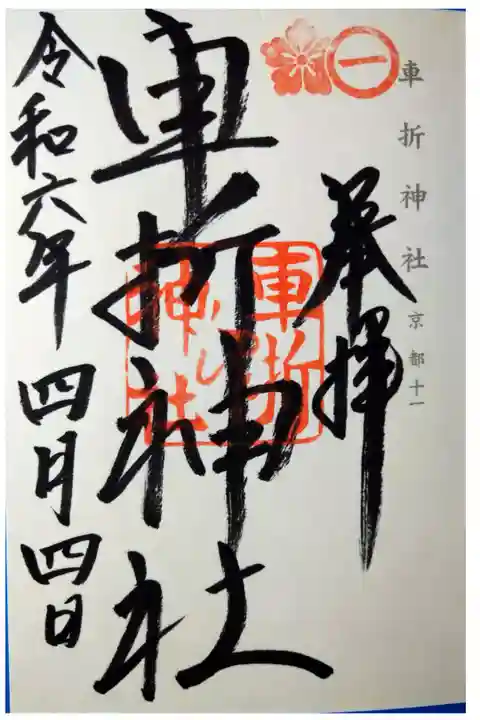 一
車折神社 京都十一
奉拝
車折神社
車折
神社
令和六年 四月四日